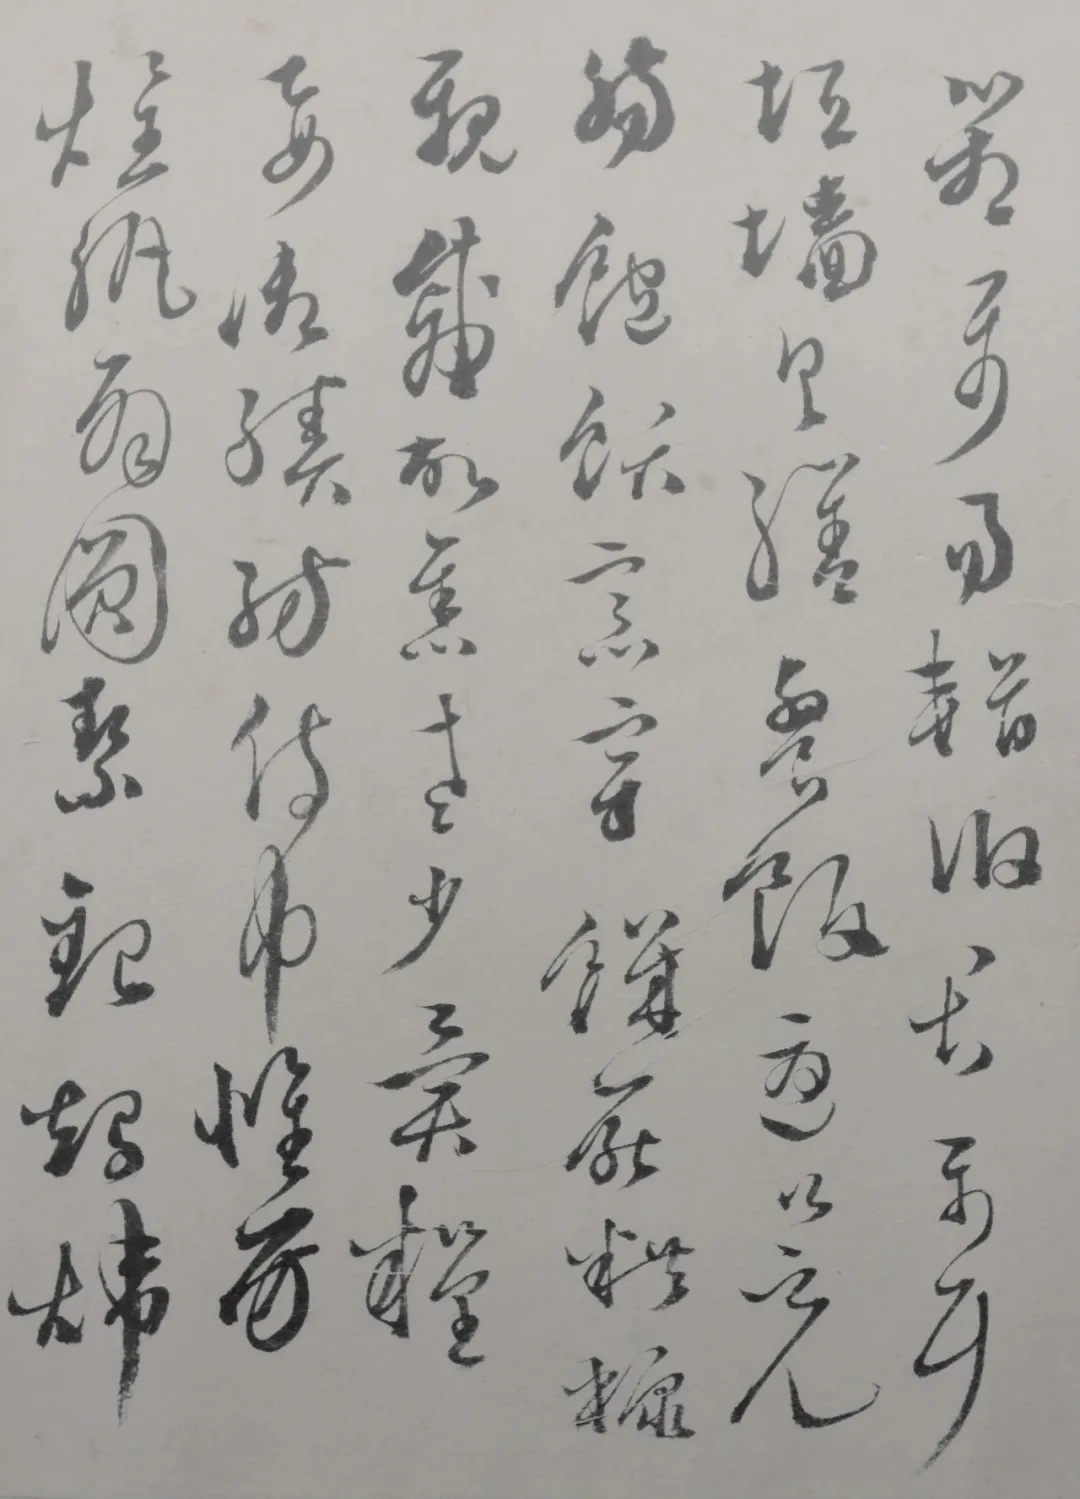 箱易輶攸畏屬耳
垣墙具膳餐飯適口充
腸飽飫烹宰饑厭糟糠
親戚故舊老少異糧
妾御績紡侍巾帷房
煌紈扇圓潔銀燭煒